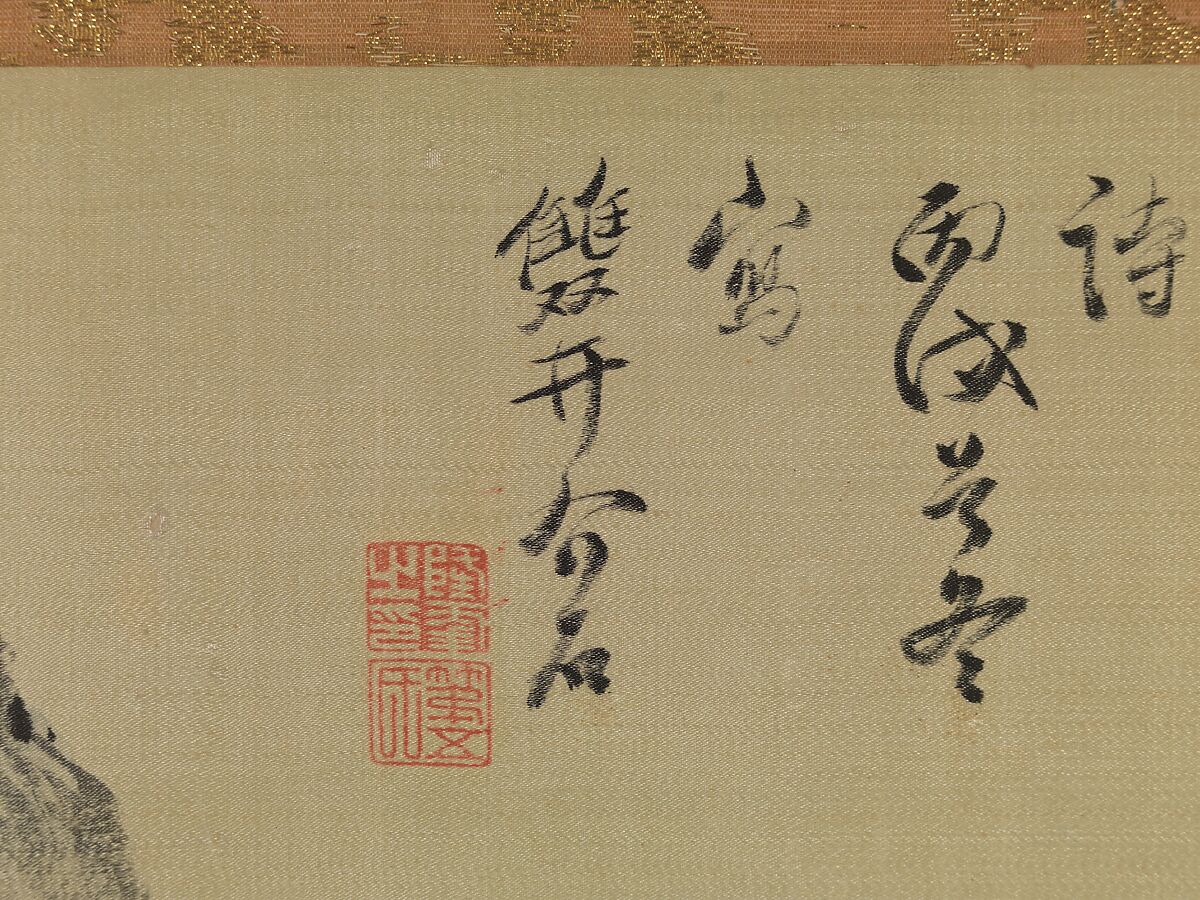 詩
丙戌首冬
寫
雙井介石